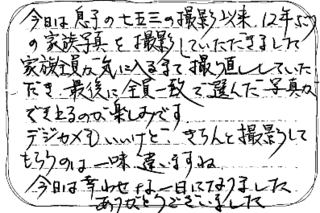 今日は息子の七五三の撮影以来、12年ぶり
の家族写真を撮影していただきました
家族全員が気に入るまで撮り直ししていた
だき、最後に全員一致で選んだ写真が
でき上るのが楽しみです。
デジカメもいいけど、きちんと撮影して
もらうのは一味違いますね
今日は幸わせな一日になりました
ありがとうございました